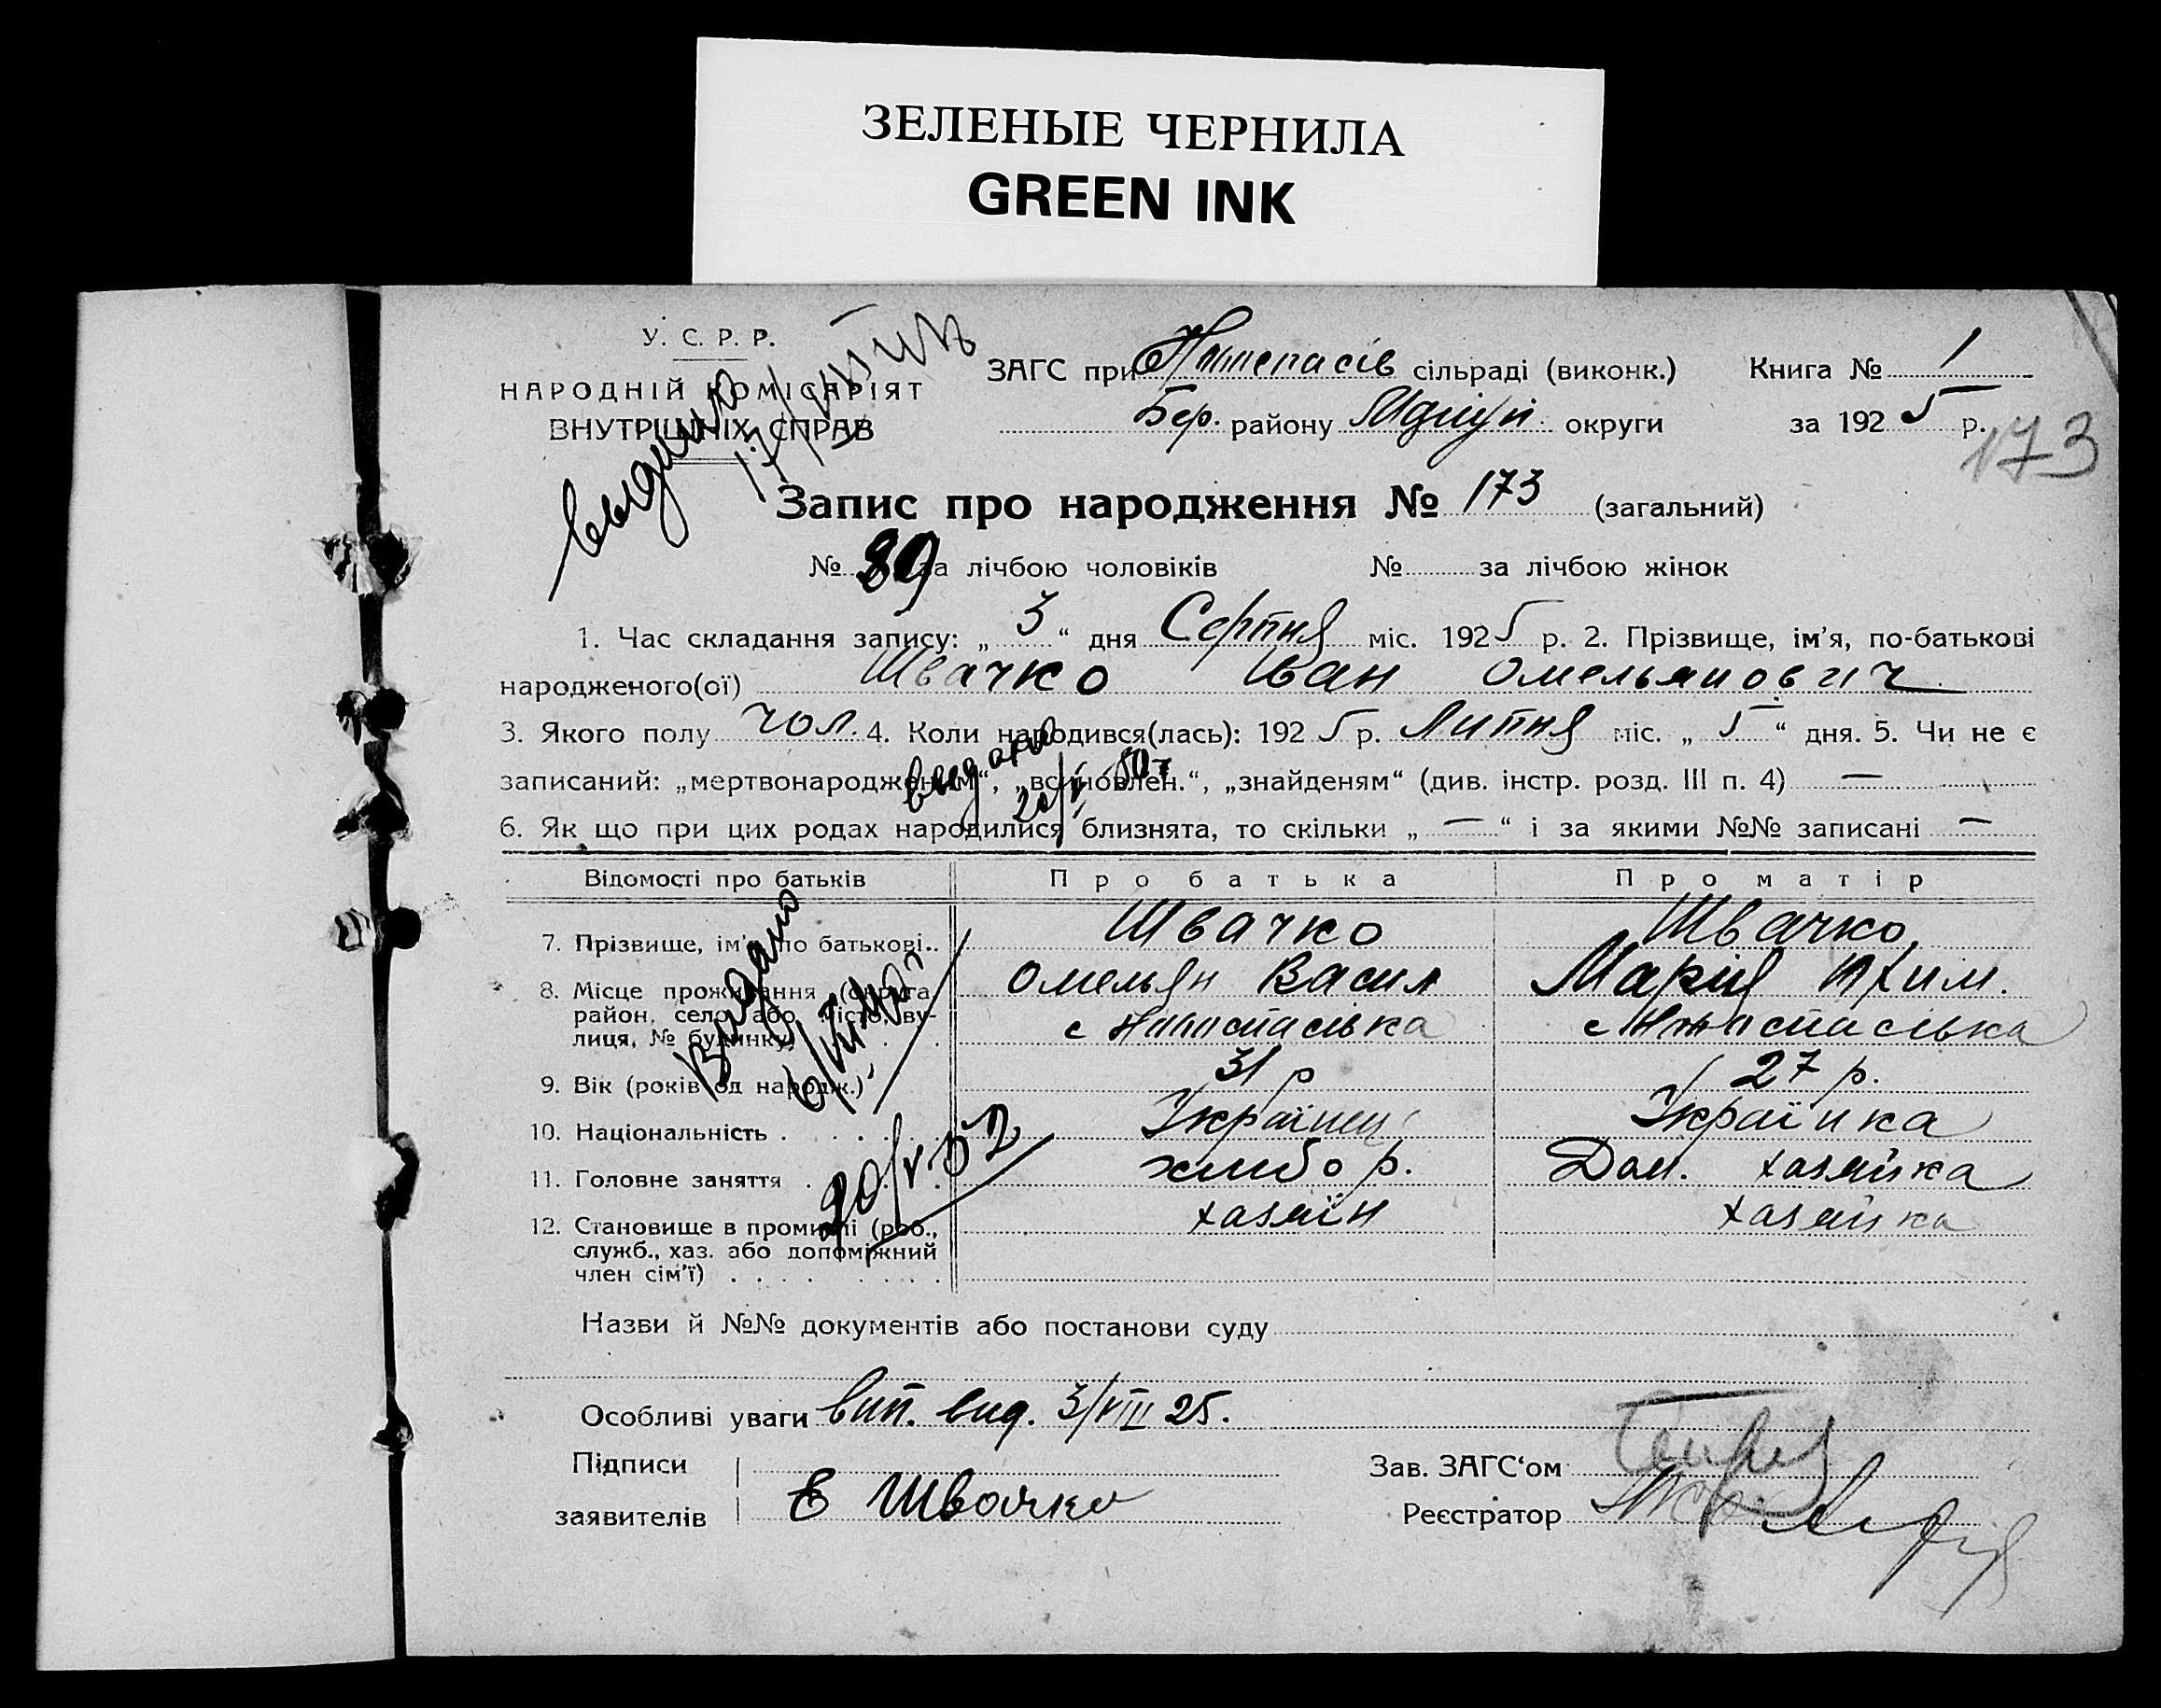 ЗЕЛЕНЫЕ ЧЕРНИЛА
GREEN INK
У. С. Р. Р.
НАРОДНІЙ КОМІСАРІЯТ
ВНУТРІШНІХ СПРАВ
ЗАГС при сільраді (виконк.) Книга № 1
Бер. району округи за 1925 р.
173
Запис про народження № 173 (загальний)
№ 89 за лічбою чоловіків № за лічбою жінок
1. Час складання запису: „3“ дня Серпня міс. 1925 р. 2. Прізвище, ім'я, по-батькові
народженого(ої) Швачко Іван Омельянович
3. Якого полу чол. 4. Коли народився(лась): 1925 р. Липня міс. „5“ дня. 5. Чи не є
записаний: „мертвонародженим“, „всиновлен.“, „знайденям“ (див. інстр. розд. III п. 4) —
6. Як що при цих родах народилися близнята, то скільки „—“ і за якими №№ записані —
Відомості про батьків Про батька Про матір
7. Прізвище, ім'я, по батькові.. Швачко Швачко
Омельян Васил Марія Яким.
8. Місце проживання (округа,
район, село або місто, ву-
лиця, № будинку)
9. Вік (років од народж.) 31 р 27 р.
10. Національність . Українец Українка
11. Головне заняття . хлібор. Дом. хазяйка
12. Становище в промислі (роб.,
служб., хаз. або допоміжний
член сім'ї) хазяїн хазяйка
Видано
20/V.52
Назви й №№ документів або постанови суду
Особливі уваги вип. вид. 3/VIII 25.
Підписи
заявителів Е Швачко
Зав. ЗАГС‘ом
Реєстратор